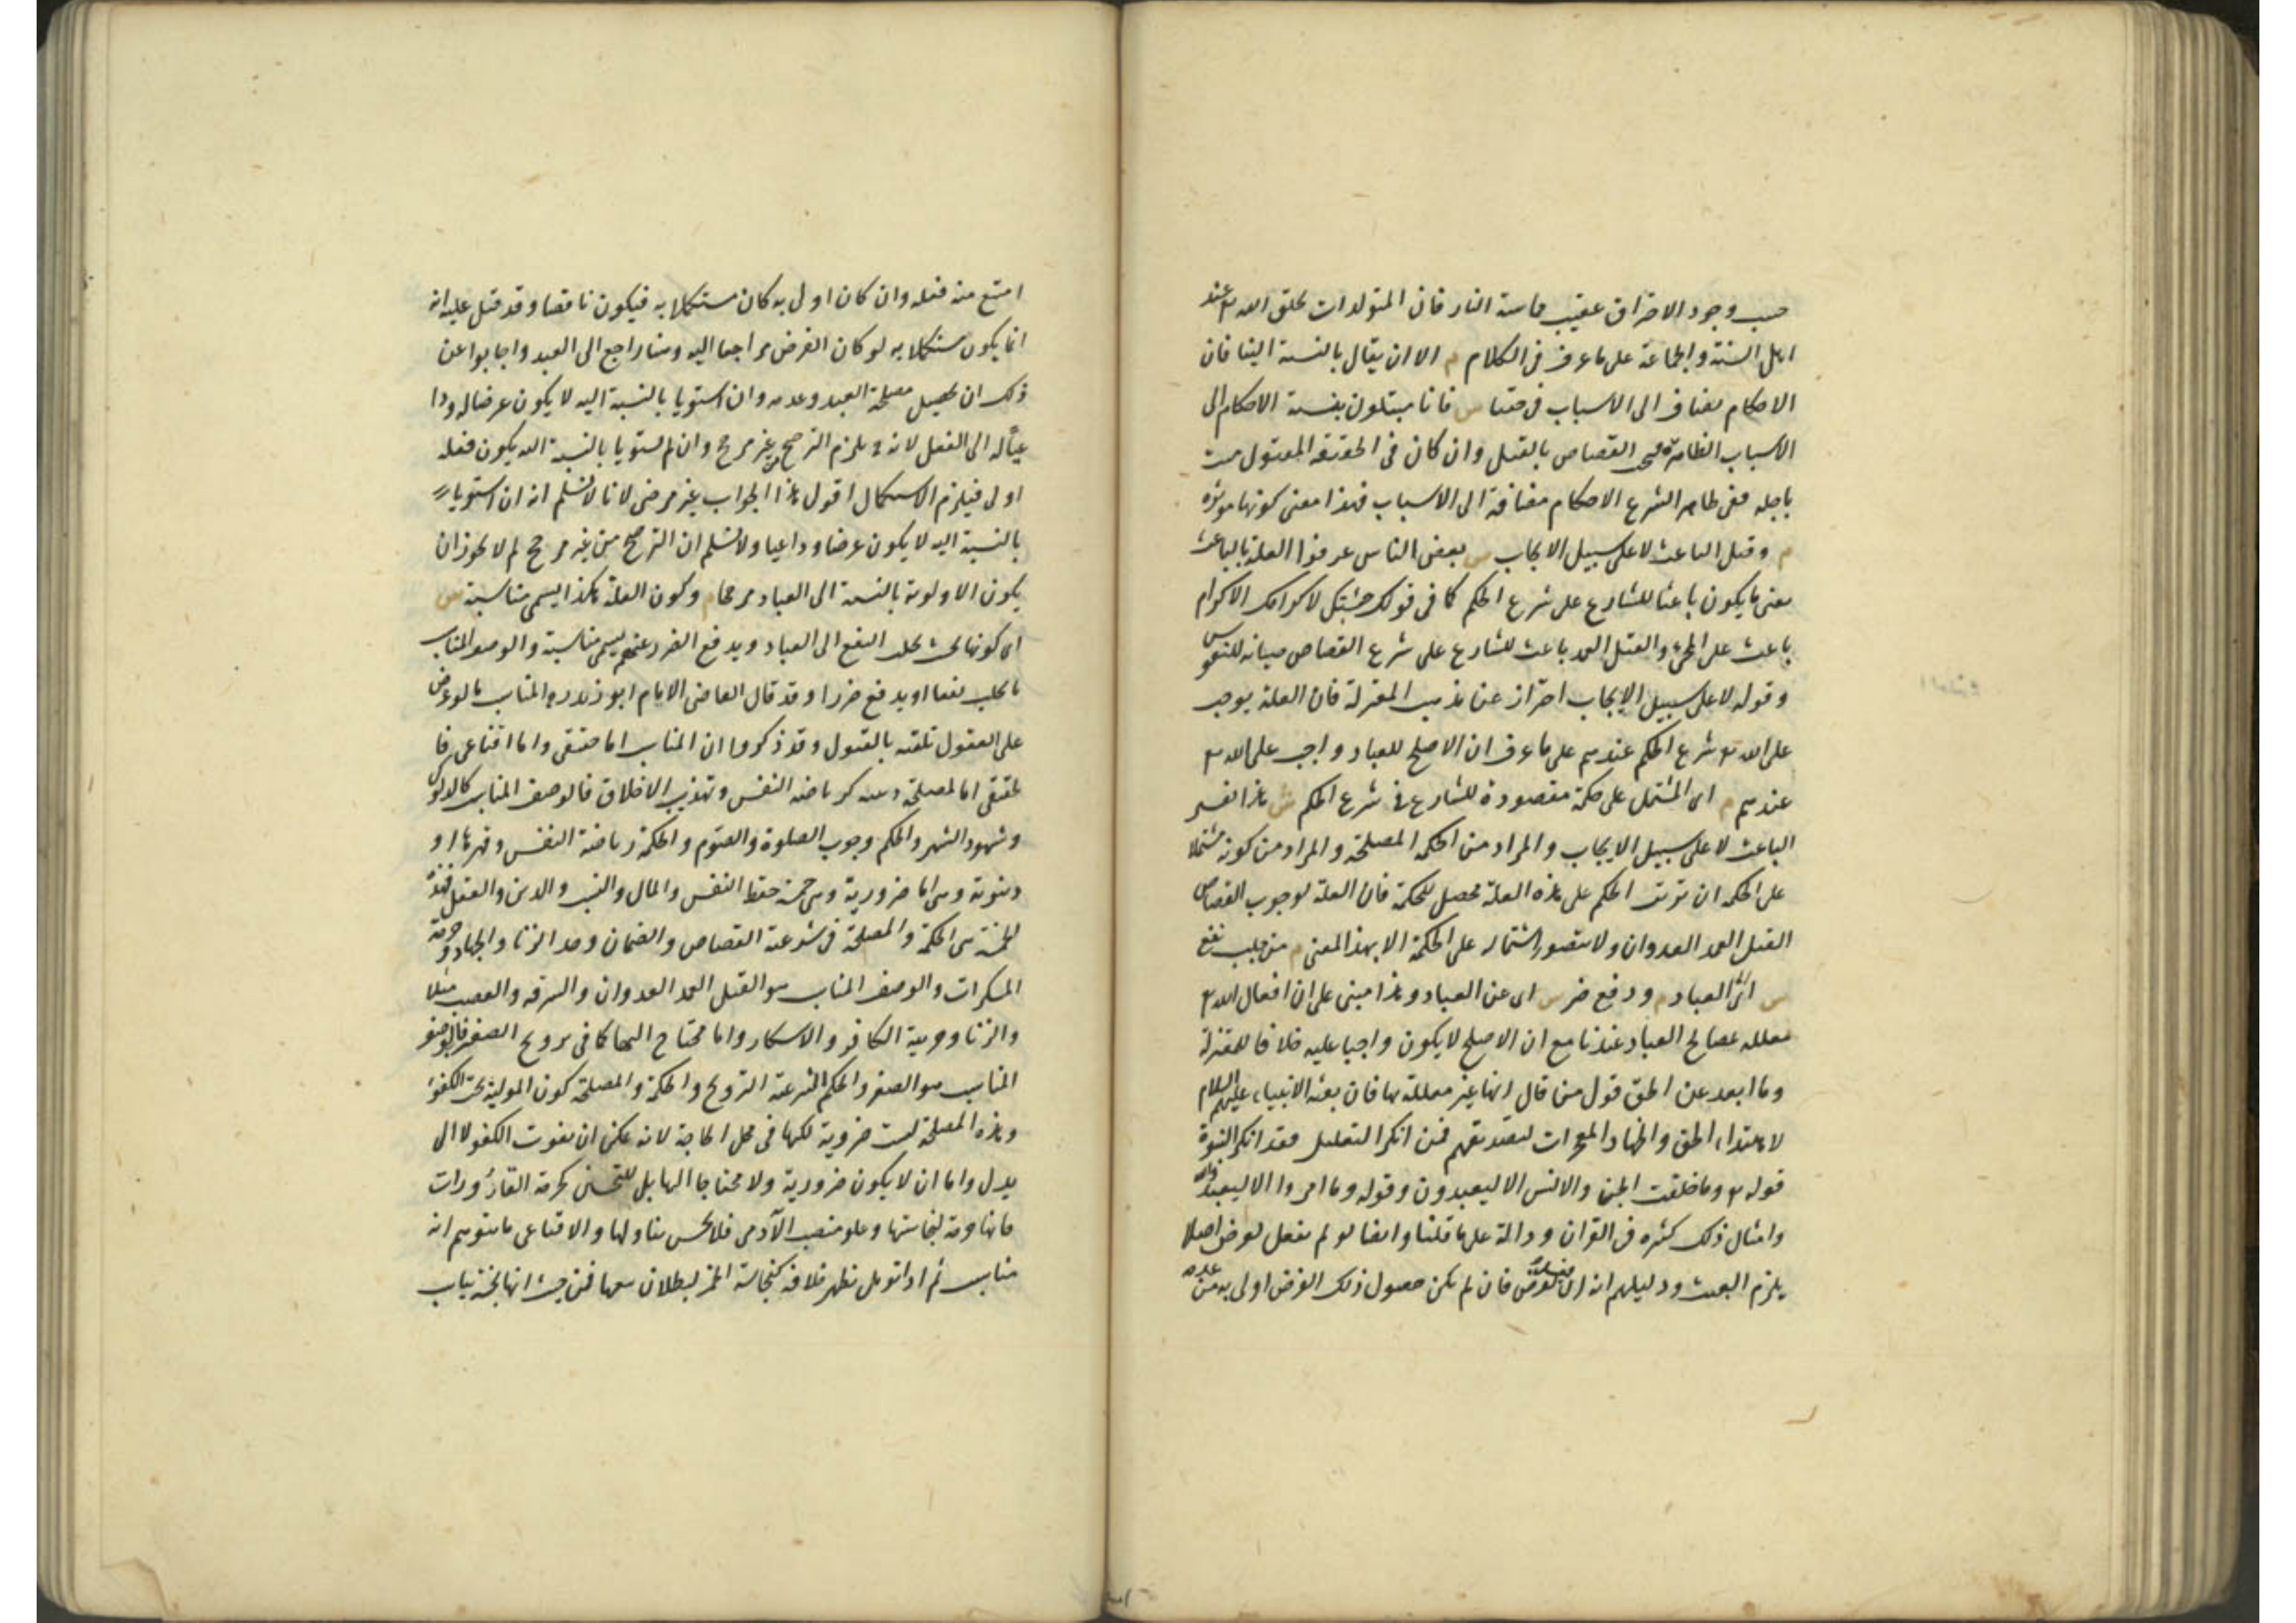 حسب وجود الاحتراق عقيب مماسة النار فان المتولدات بخلق الله تع عند
اهل السنة والجماعة على ما عرف فى الكلام م الا ان يقال بالنسبة الينا فان
الاحكام تضاف الى الاسباب فى حقنا ش فانا مبتلون بنسبة الاحكام الى
الاسباب الظاهرة القصاص بالقتل وان كان فى الحقيقة المقتول ميت
باجله ففى ظاهر الشرع الاحكام مضافة الى الاسباب فهذا معنى كونها موثرة
م وقيل الباعث لا على سبيل الايجاب ش بعض الناس عرفوا العلة بالباعث
يعنى ما يكون باعثا للشارع على شرع الحكم كما فى قولك جئتك لاكرامك الاكرام
باعث على المجئ والقتل العمد باعث للشارع على شرع القصاص صيانة للنفوس
وقوله لا على سبيل الايجاب احتراز عن مذهب المعتزلة فان العلة يوجب
على الله تع شرع الحكم عندهم على ما عرف ان الاصلح للعباد واجب على الله تع
عندهم م اى المشتمل على حكمة مقصودة للشارع فى شرع الحكم ش هذا تفسير
الباعث لا على سبيل الايجاب والمراد من الحكمة المصلحة والمراد من كونه مشتملا
على الحكمة ان ترتب الحكم على هذه العلة محصل للحكمة فان العلة لوجوب القصاص
القتل العمد العدوان ولا يتصور اشتماله على الحكمة الا بهذا المعنى م من جلب نفع
ش اى الى العباد م ودفع ضر ش اى عن العباد وهذا مبنى على ان افعال الله تع
معللة بمصالح العباد عندنا مع ان الاصلح لا يكون واجبا عليه خلافا للمعتزلة
وما ابعد عن الحق قول من قال انها غير معللة بها فان بعثة الانبياء عليهم السلام
لاهتداء الخلق واظهار المعجزات لتصديقهم فمن انكر التعليل فقد انكر النبوة
قوله تع وما خلقت الجن والانس الا ليعبدون وقوله وما امروا الا ليعبدوا الله
وامثال ذلك كثيرة فى القران ودالة على ما قلنا وايضا لو لم يفعل لغرض اصلا
يلزم العبث ودليلهم انه ان فعل لغرض فان لم يكن حصول ذلك الغرض اولى به من عدمه
امتنع منه فعله وان كان اولى به كان مستكملا به فيكون ناقصا وقد قيل عليه انه
انما يكون مستكملا به لو كان الغرض راجعا اليه وهنا راجع الى العبد واجابوا عن
ذلك ان تحصيل مصلحة العبد وعدمه وان استويا بالنسبة اليه لا يكون غرضا له ودا
عيا له الى الفعل لانه ح يلزم الترجيح من غير مرجح وان لم يستويا بالنسبة اليه يكون فعله
اولى فيلزم الاستكمال اقول هذا الجواب غير مرضى لانا لا نسلم انه ان استويا
بالنسبة اليه لا يكون غرضا وداعيا ولا نسلم ان الترجيح من غير مرجح لم لا يجوز ان
يكون الاولوية بالنسبة الى العباد مرجحا م وكون العلة هكذا يسمى مناسبة ش
اى كونها بحيث تجلب النفع الى العباد ويدفع الضرر عنهم يسمى مناسبة والوصف المناسب
ما يجلب نفعا او يدفع ضررا وقد قال القاضى الامام ابو زيد ره المناسب ما لو عرض
على العقول تلقته بالقبول وقد ذكروا ان المناسب اما حقيقى واما اقناعى فا
لحقيقى اما لمصلحة دينية كرياضة النفس وتهذيب الاخلاق فالوصف المناسب كالدلوك
وشهود الشهر والحكم وجوب الصلوة والصوم والحكمة رياضة النفس وقهرها او
دنيوية وهى اما ضرورية وهى خمسة حفظ النفس والمال والنسب والدين والعقل فهذه
الخمسة هى الحكمة والمصلحة فى شرعية القصاص والضمان وحد الزنا والجهاد وحرمة
المسكرات والوصف المناسب هو القتل العمد العدوان والسرقة والغصب مثلا
والزنا وحربية الكافر والاسكار واما محتاج اليها كما فى تزويج الصغير فالوصف
المناسب هو الصغر والحكم شرعية التزويج والحكمة والمصلحة كون المولية تحت الكفؤ
وهذه المصلحة ليست ضرورية لكنها فى محل الحاجة لانه يمكن ان يفوت الكفو لا الى
بدل واما ان لا يكون ضرورية ولا محتاجا اليها بل للتحسين كحرمة القاذورات
فانها حرمة لنجاستها وعلو منصب الآدمى فلا يحسن تناولها والاقناعى ما يتوهم انه
مناسب ثم اذا تومل يظهر خلافه كنجاسة الخمر لبطلان بيعها فمن حيث انها نجسة يناسب